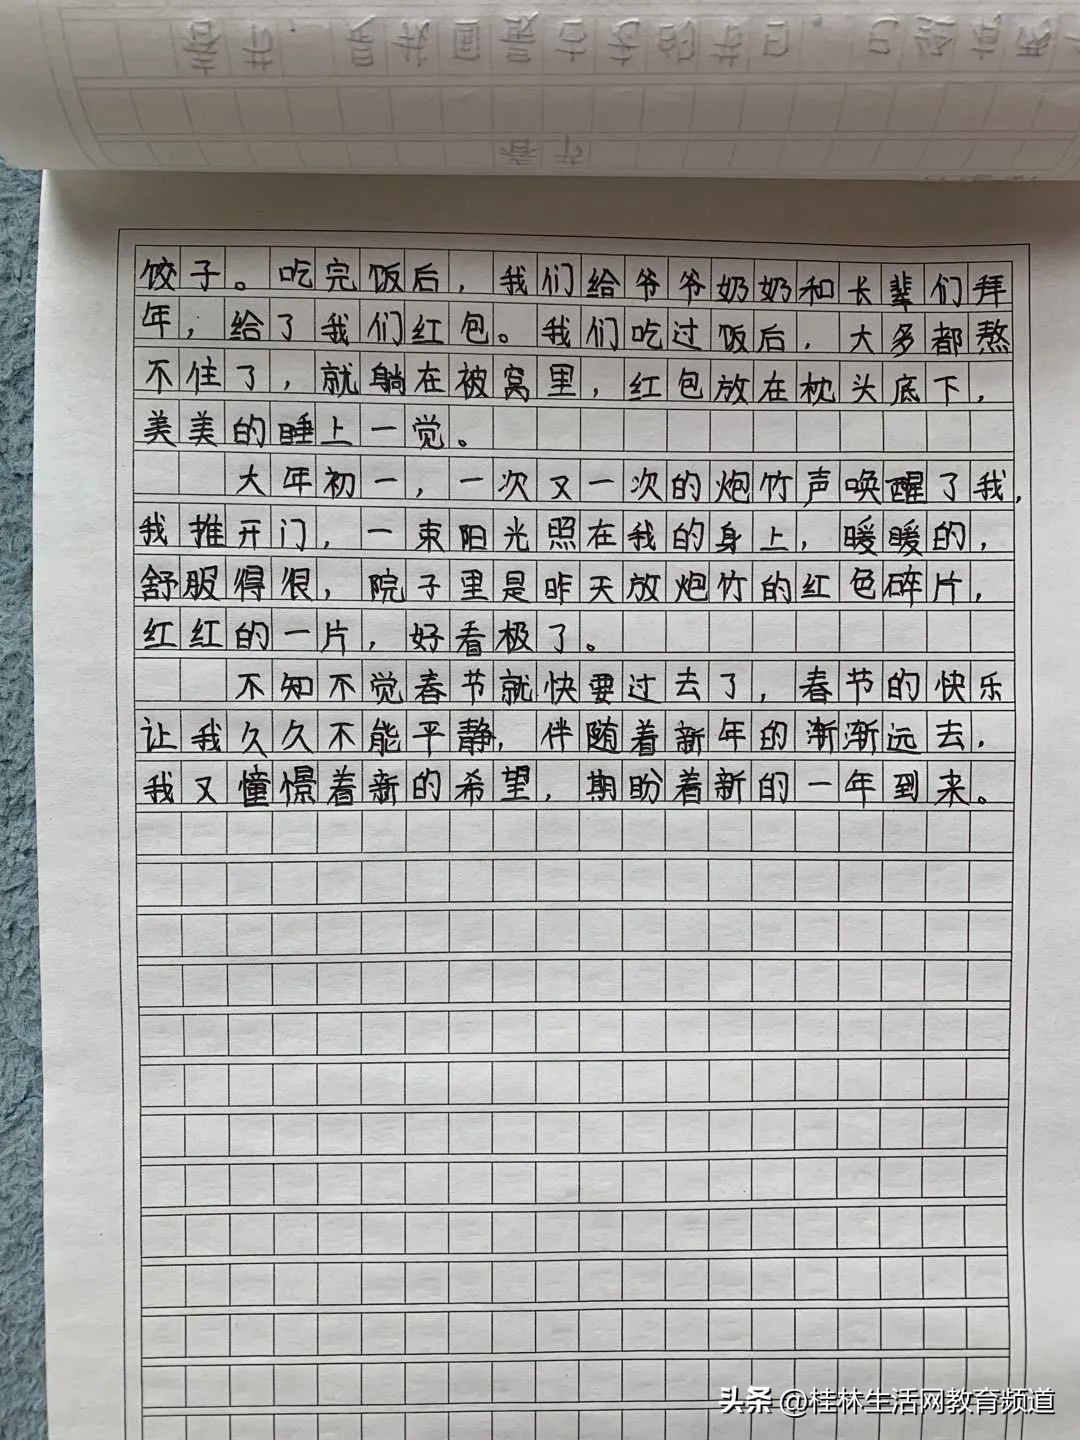 春节,是我国最古老的节日,已经有
春节
饺子。吃完饭后,我们给爷爷奶奶和长辈们拜
年,给了我们红包。我们吃过饭后,大多都熬
不住了,就躺在被窝里,红包放在枕头底下,
美美的睡上一觉。
大年初一,一次又一次的炮竹声唤醒了我,
我推开门,一束阳光照在我的身上,暖暖的,
舒服得很,院子里是昨天放炮竹的红色碎片,
红红的一片,好看极了。
不知不觉春节就快要过去了,春节的快乐
让我久久不能平静,伴随着新年的渐渐远去,
我又憧憬着新的希望,期盼着新的一年到来。
头条 @桂林生活网教育频道